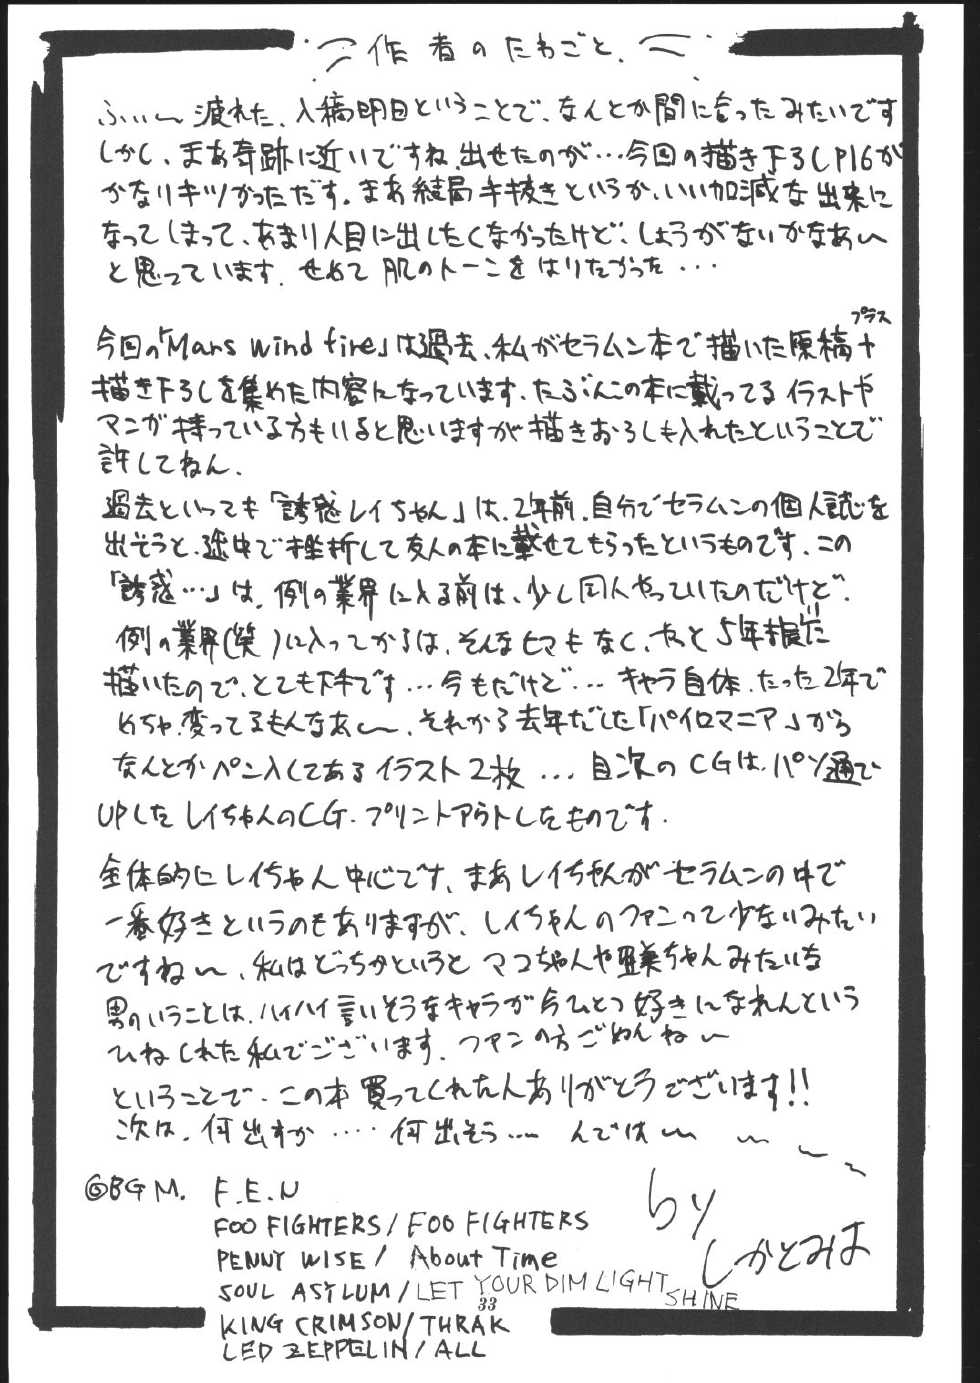 作者のたわごと.
ふぃ〜疲れた、入稿明日ということで、なんとか間に合ったみたいです
しかし、まあ奇跡に近いですね、出せたのが…今回の描き下ろしP16が
かなりキツかっただす。まあ結局手抜きというか、いい加減な出来に
なってしまって、あまり人目に出したくなかったけど、しょうがないかなあ〜
と思っています。せめて肌のトーンをはりたかった...
プラス
今回の「Mars wind fire」は過去、私がセラムン本で描いた原稿+
描き下ろしを集めた内容になっています。たぶんこの本に載ってるイラストや
マンガ持っている方もいると思いますが描きおろしも入れたということで
許してねん、
過去といっても「誘惑レイちゃん」は、2年前、自分でセラムンの個人誌を
出そうと、途中で挫折して友人の本に載せてもらったというものです、この
「誘惑…」は、例の業界に入る前は、少し同人やっていたのだけど、
例の業界(笑)に入ってからは、そんなヒマもなく、やっと5年振りに
描いたので、とても下手です…今もだけど…キャラ自体、たった2年で
めちゃ変ってるもんなあ〜、それから去年だした「パイロマニア」から
なんとかペン入してあるイラスト2枚...目次のCGは、パソ通で
UPしたレイちゃんのCG、プリントアウトしたものです.
全体的にレイちゃん中心です、まあレイちゃんがセラムンの中で
一番好きというのもありますが、レイちゃんのファンって少ないみたい
ですね〜、私はどっちかというとマコちゃんや亜美ちゃんみたいな
男のいうことは、ハイハイ言いそうなキャラが今ひとつ好きになれんという
ひねくれた私でございます、ファンの方ごめんね〜
ということで、この本買ってくれた人ありがとうでございます!!
次は、何出すか....何出そう....んでは〜
◎BGM. F.E.N
FOO FIGHTERS/FOO FIGHTERS
PENNY WISE/About Time
SOUL ASYLUM/LET YOUR DIM LIGHT SHINE
KING CRIMSON/THRAK
LED ZEPPELIN/ALL
by
しかとみよ
33